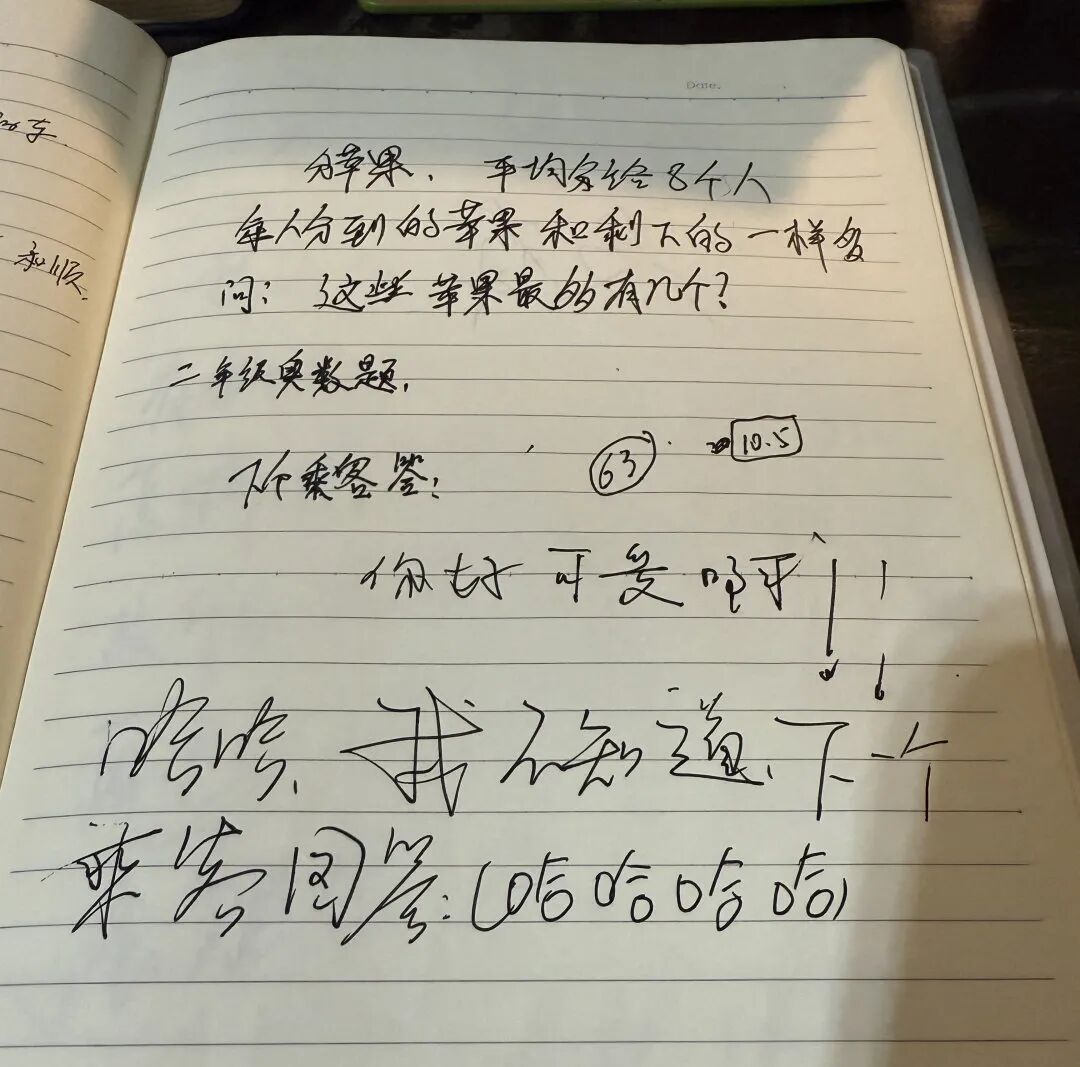 Date.
分苹果，平均分给8个人
每人分到的苹果和剩下的一样多
问：这些苹果最多有几个？
二年级奥数题，
下个乘客答：
63
10.5
你好可爱呀
哈哈，我不知道，下一个
乘客回答：（哈哈哈哈）